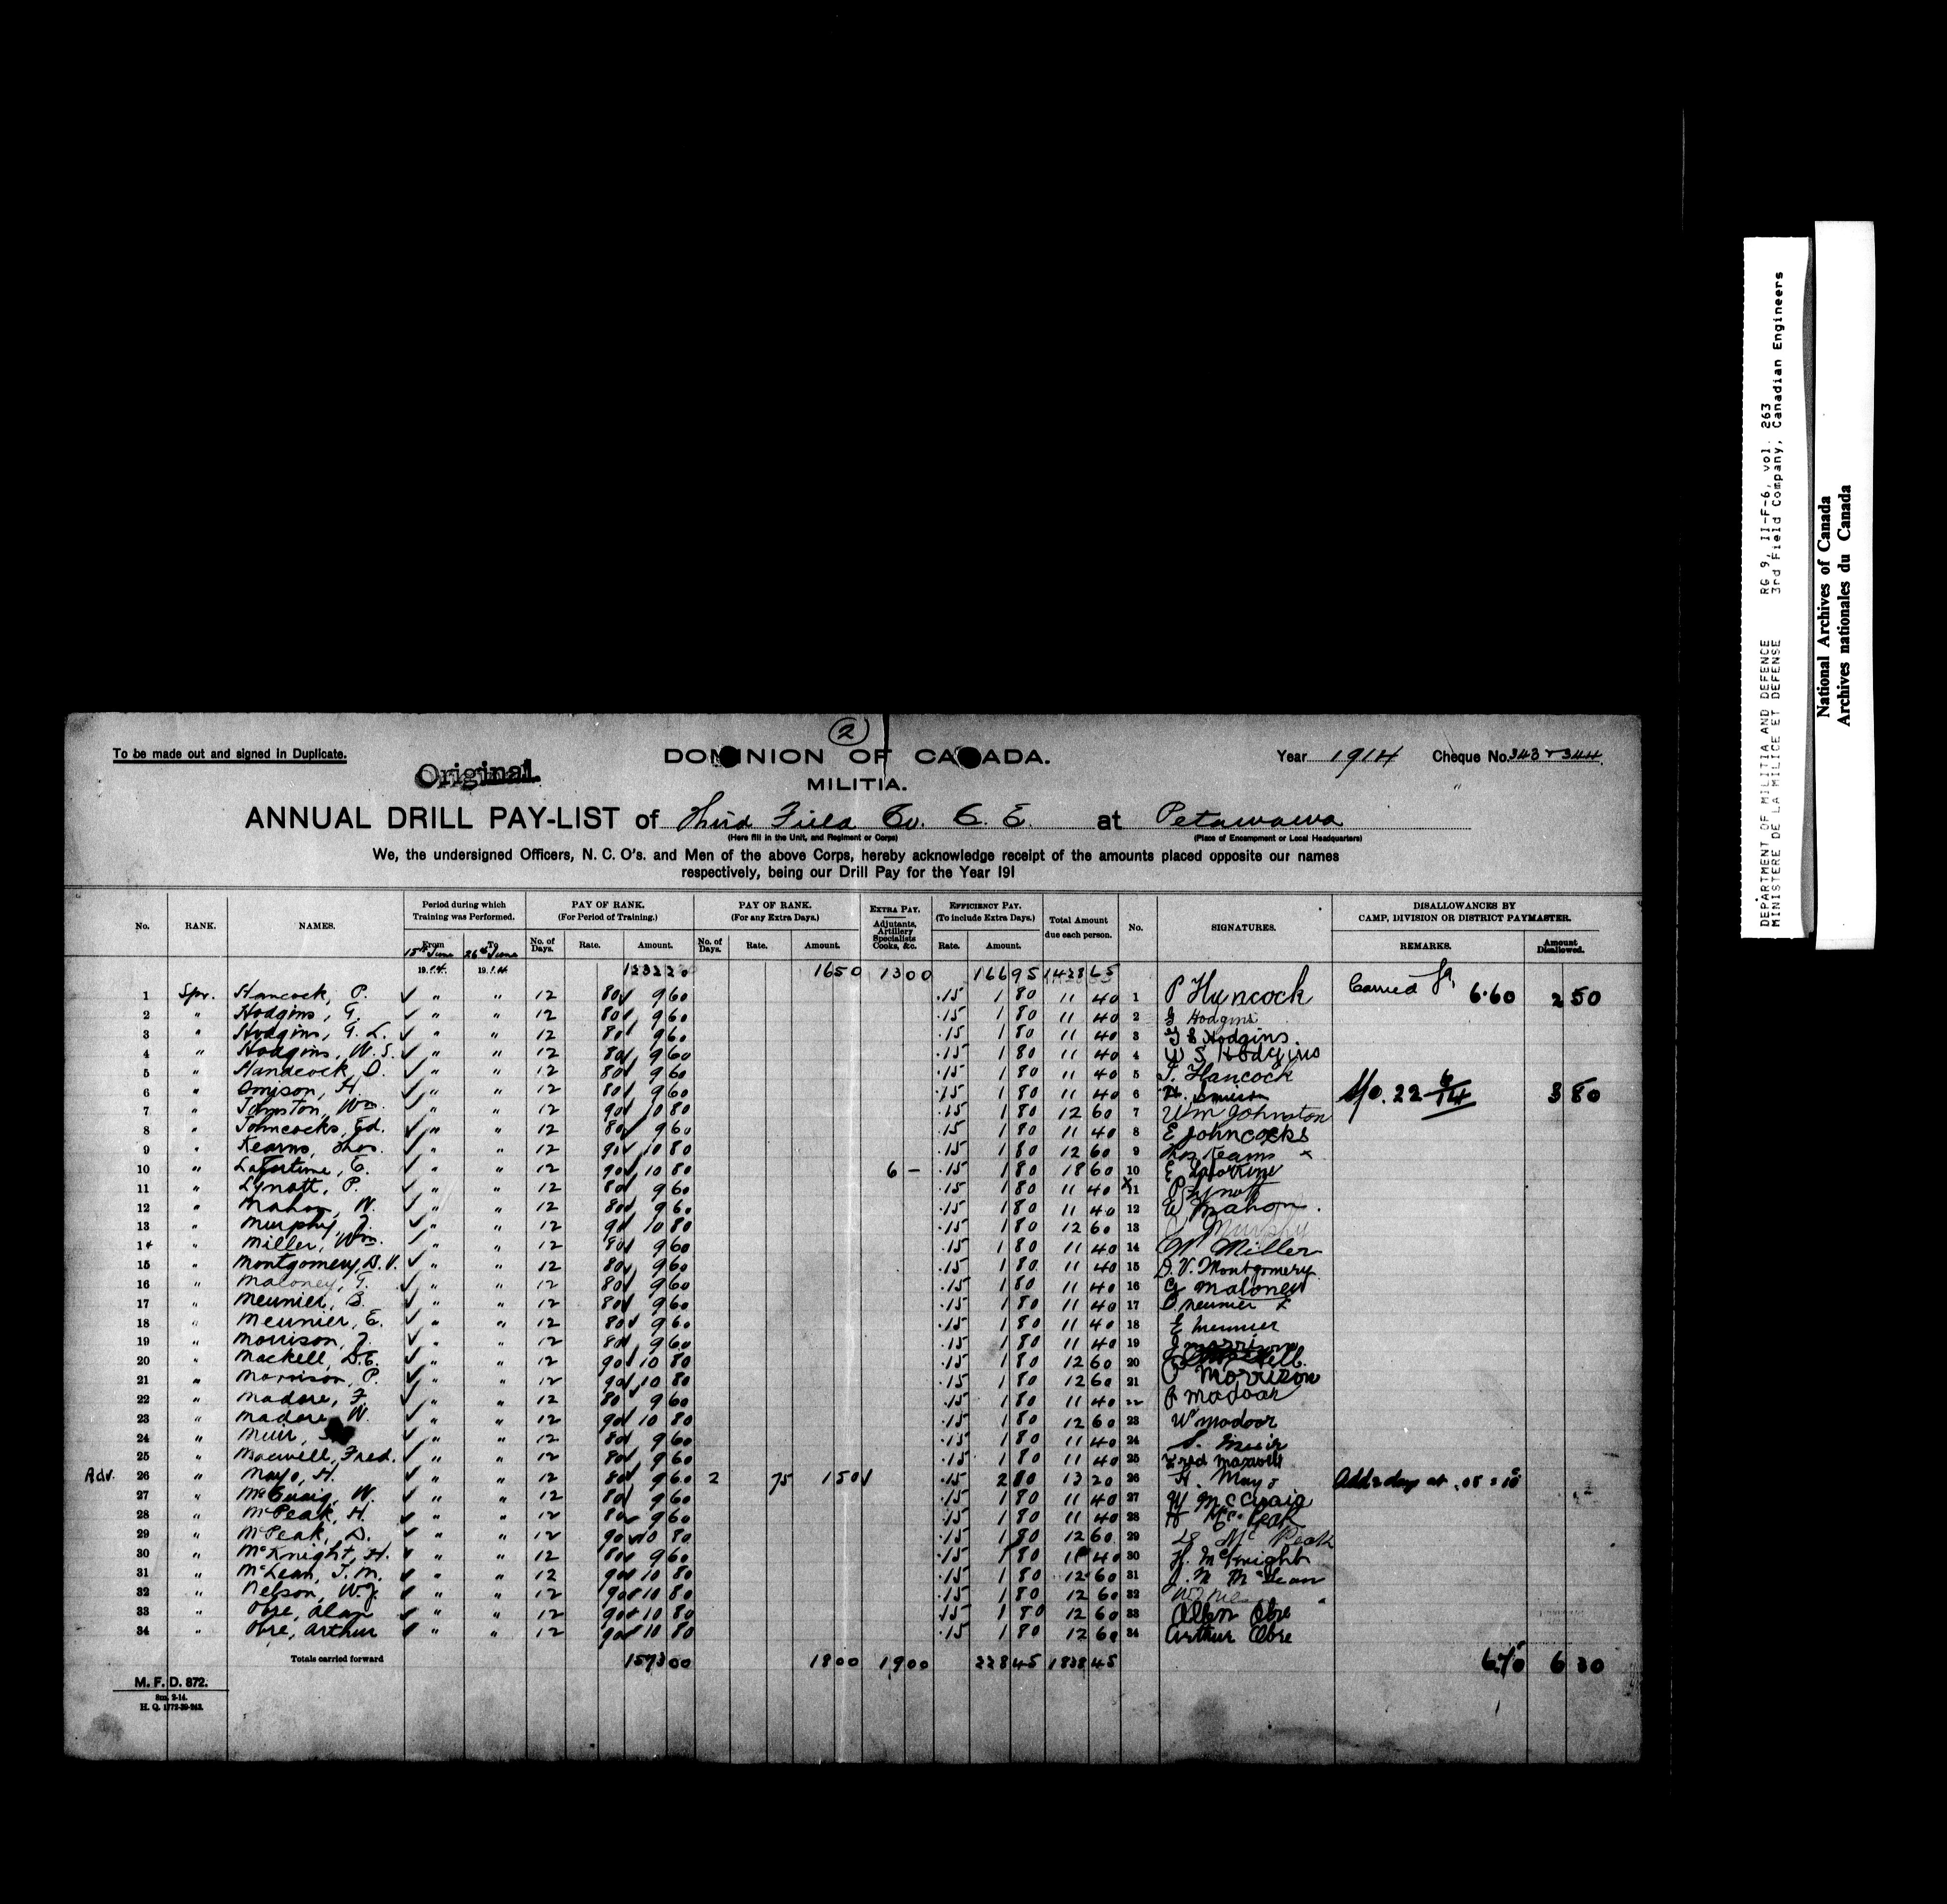 2
To be made out and signed in Duplicate.
Original
DOMINION OF CANADA.
MILITIA.
Year 1914 Cheque No. 343 & 344
ANNUAL DRILL PAY-LIST of Third Field Co. C. E. at Petawawa
(Here fill in the Unit, and Regiment or Corps) (Place of Encampment or Local Headquarters)
We, the undersigned Officers, N. C. O's. and Men of the above Corps, hereby acknowledge receipt of the amounts placed opposite our names
respectively, being our Drill Pay for the Year 191
No. RANK. NAMES. Period during which Training was Performed. From 15th June 19.14. To 26th June 19.14 PAY OF RANK. (For Period of Training.) No. of Days. Rate. Amount. PAY OF RANK. (For any Extra Days.) No. of Days. Rate. Amount. EXTRA PAY. Adjutants, Artillery Specialists Cooks, &c. EFFICIENCY PAY. (To include Extra Days.) Rate. Amount. Total Amount due each person. No. SIGNATURES. DISALLOWANCES BY CAMP, DIVISION OR DISTRICT PAYMASTER. REMARKS. Amount Disallowed.
1232 20 16 50 13 00 166 95 1428 65
1 Spr. Hancock, P. ✓ " " 12 80 9 60 .15 1 80 11 40 1 P Hancock Carried 6.60 2 50
2 " Hodgins, G. ✓ " " 12 80 9 60 .15 1 80 11 40 2 G Hodgins
3 " Hodgins, G. L. ✓ " " 12 80 9 60 .15 1 80 11 40 3 G L Hodgins.
4 " Hodgins, W. S. ✓ " " 12 80 9 60 .15 1 80 11 40 4 W S Hodgins
5 " Handcock, D. ✓ " " 12 80 9 60 .15 1 80 11 40 5 Hancock
6 " Imison, H. ✓ " " 12 80 9 60 .15 1 80 11 40 6 H. Imison 22 6/14 3 80
7 " Johnston, Wm. ✓ " " 12 90 10 80 .15 1 80 12 60 7 Wm Johnston
8 " Johncocks, Ed. ✓ " " 12 80 9 60 .15 1 80 11 40 8 E Johncocks
9 " Kearns, Thos. ✓ " " 12 90 10 80 .15 1 80 12 60 9 Thos Kearns x
10 " Lafortune, E. ✓ " " 12 90 10 80 6 – .15 1 80 18 60 10 E Lafortune
11 " Lynott, P. ✓ " " 12 80 9 60 .15 1 80 11 40 x11 P Lynott
12 " Mahon, W. ✓ " " 12 80 9 60 .15 1 80 11 40 12 W Mahon.
13 " Murphy, J. ✓ " " 12 90 10 80 .15 1 80 12 60 13 J Murphy
14 " Miller, Wm. ✓ " " 12 80 9 60 .15 1 80 11 40 14 W Miller
15 " Montgomery, D. V. ✓ " " 12 80 9 60 .15 1 80 11 40 15 D. V. Montgomery
16 " Maloney, G. ✓ " " 12 80 9 60 .15 1 80 11 40 16 G Maloney
17 " Meunier, B. ✓ " " 12 80 9 60 .15 1 80 11 40 17 B Meunier x
18 " Meunier, E. ✓ " " 12 80 9 60 .15 1 80 11 40 18 E Meunier
19 " Morrison, J. ✓ " " 12 80 9 60 .15 1 80 11 40 19 J Morrison
20 " Mackell, D.E. ✓ " " 12 90 10 80 .15 1 80 12 60 20
21 " Morrison, P. ✓ " " 12 90 10 80 .15 1 80 12 60 21 P Morrison
22 " Madore, F. ✓ " " 12 80 9 60 .15 1 80 11 40 22 Madoar
23 " Madore, W. ✓ " " 12 90 10 80 .15 1 80 12 60 23 W Madoar
24 " Muir, ✓ " " 12 80 9 60 .15 1 80 11 40 24 S. Muir
25 " Maxwell, Fred. ✓ " " 12 80 9 60 .15 1 80 11 40 25 Fred Maxwell
Adv. 26 " Mayo, H. ✓ " " 12 80 9 60 2 75 1 50 ✓ .15 2 80 13 20 26 H. Mayo Add 2 days at .05 = 10
27 " McCuaig, W. ✓ " " 12 80 9 60 .15 1 80 11 40 27 W McCuaig
28 " McPeak, H. ✓ " " 12 80 9 60 .15 1 80 11 40 28 H McPeak
29 " McPeak, D. ✓ " " 12 90 10 80 .15 1 80 12 60 29 McPeak
30 " McKnight, H. ✓ " " 12 80 9 60 .15 1 80 11 40 30 H. McKnight
31 " McLean, J. M. ✓ " " 12 90 10 80 .15 1 80 12 60 31 J. M McLean
32 " Nelson, W.J. ✓ " " 12 90 10 80 .15 1 80 12 60 32
33 " Obre, Alan ✓ " " 12 90 10 80 .15 1 80 12 60 33 Allen Obre
34 " Obre, Arthur ✓ " " 12 90 10 80 .15 1 80 12 60 34 Arthur Obre
Totals carried forward 1573 00 18 00 19 00 228 45 1838 45 6.70 6 30
M. F. D. 872.
8m. 2-14.
H. Q. 1772-39-243.
DEPARTMENT OF MILITIA AND DEFENCE RG 9, II-F-6, vol. 263
MINISTERE DE LA MILICE ET DEFENSE 3rd Field Company, Canadian Engineers
National Archives of Canada
Archives nationales du Canada